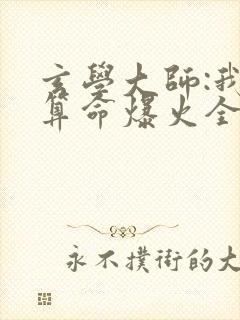 玄學大師:我
算命爆火全
永不撲街的大